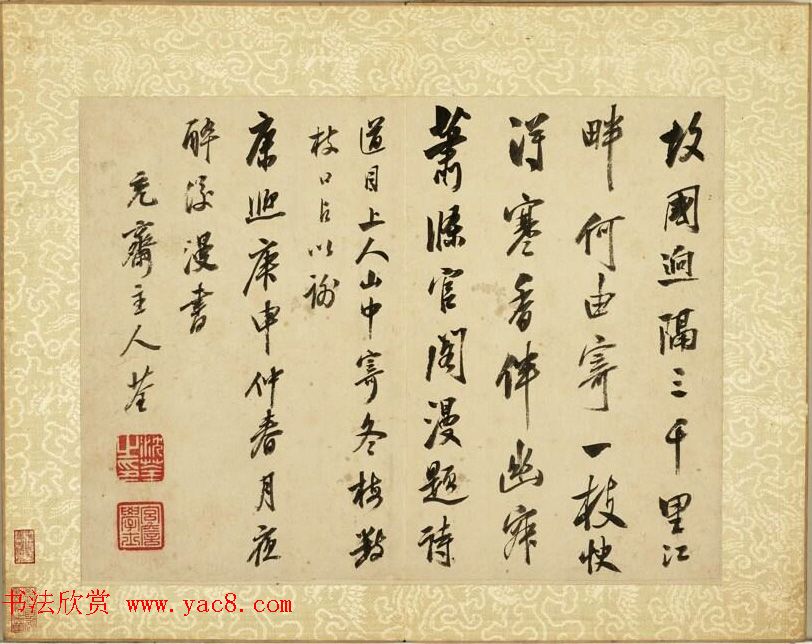 故國迥隔三千里江
畔何由寄一枝快
得寒香伴幽寂
蕭條官閣漫題詩
道目上人山中寄冬梅數
枝口占以謝
康熙庚申仲春月夜
醉後漫書
充齋主人荃
沈荃之印
書法欣赏 www.yac8.com